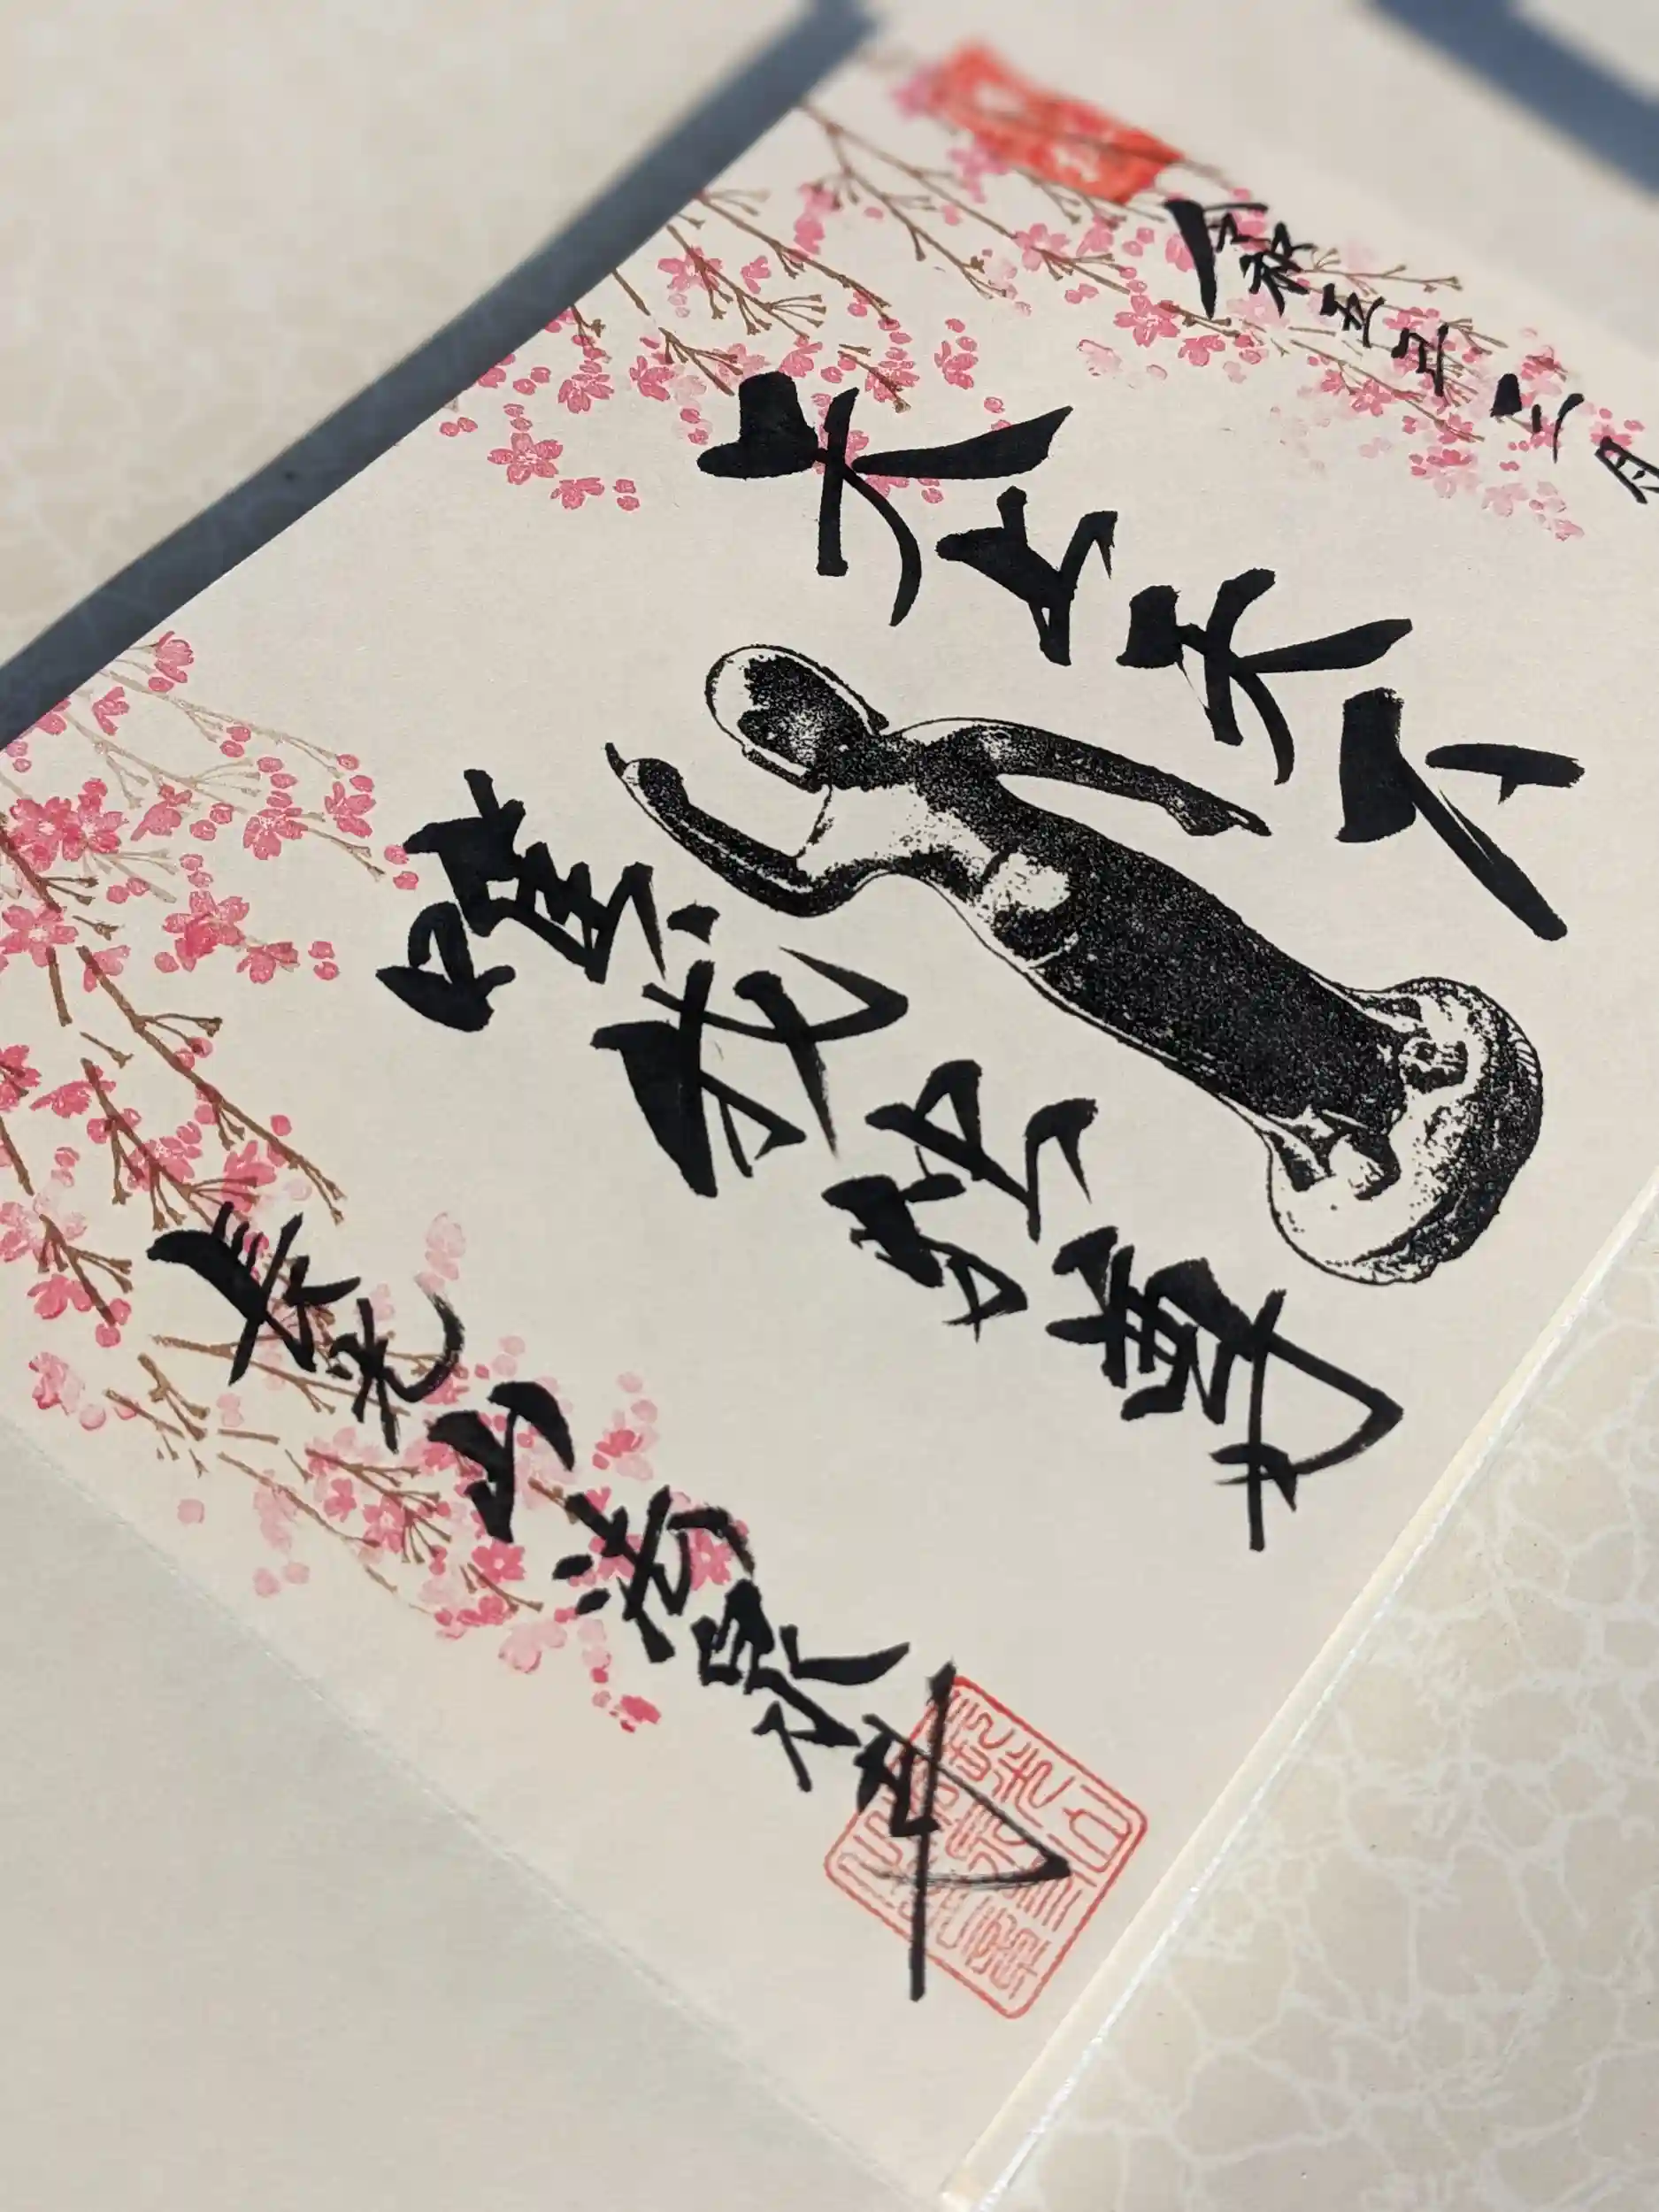 令和五年三月
天上天下
唯我独尊
光山 寺